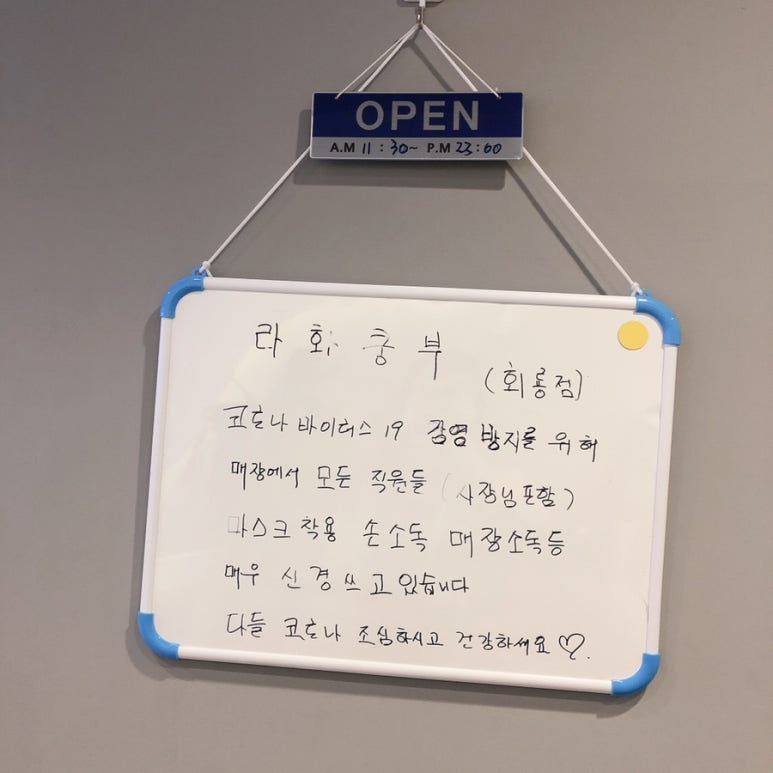 OPEN
A.M 11 : 30~ P.M 23:00
라화쿵부
(회룡점)
코로나 바이러스 19 감염 방지를 위해
매장에서 모든 직원들 (사장님포함)
마스크 착용 손소독 매장소독등
매우 신경쓰고있습니다
다들 코로나 조심하시고 건강하세요♡.